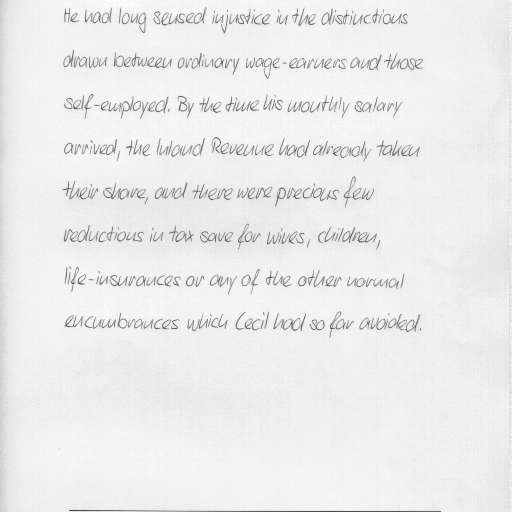 He had long sensed injustice in the distinctions
drawn between ordinary wage-earners and those
self-employed. By the time his monthly salary
arrived, the Inland Revenue had already taken
their share, and there were precious few
reductions in tax save for wives, children,
life-insurances or any of the other normal
encumbrances which Cecil had so far avoided.